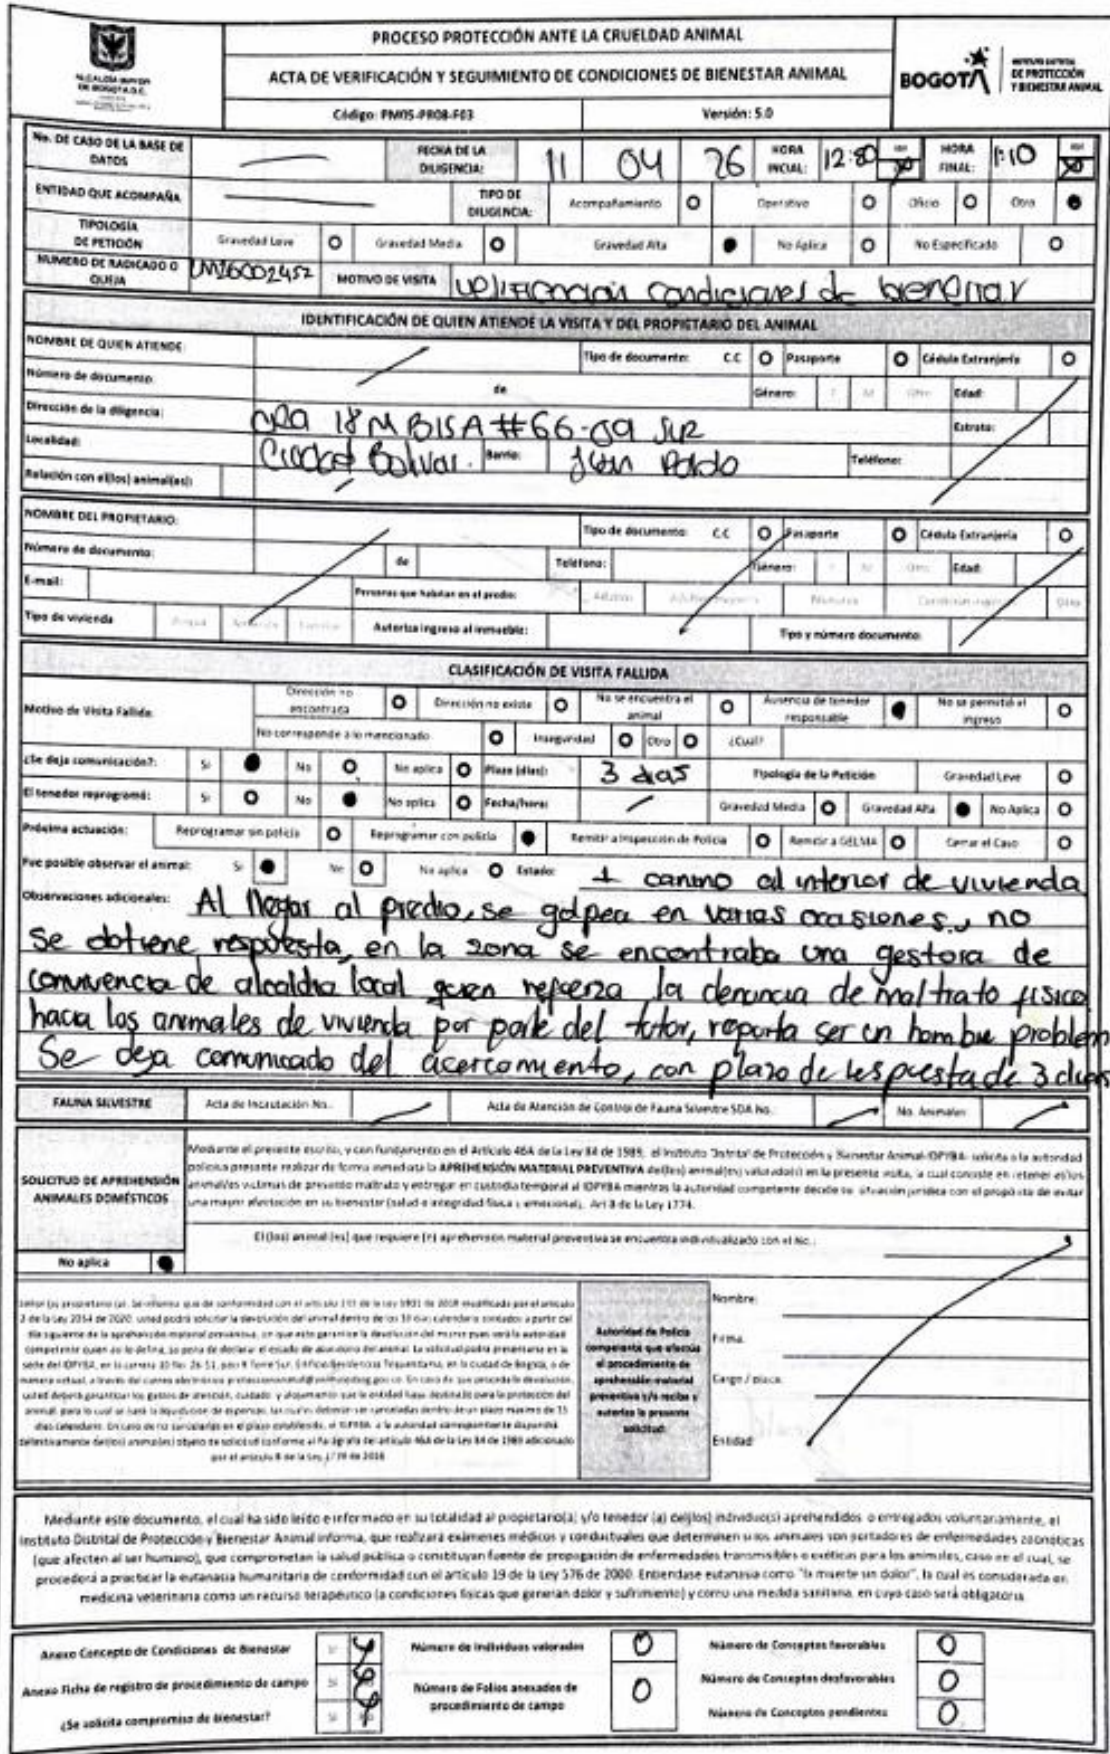 PROCESO PROTECCIÓN ANTE LA CRUELDAD ANIMAL
ALCALDÍA MAYOR
DE BOGOTÁ D.C.
ACTA DE VERIFICACIÓN Y SEGUIMIENTO DE CONDICIONES DE BIENESTAR ANIMAL
BOGOTÁ
INSTITUTO DISTRITAL
DE PROTECCIÓN
Y BIENESTAR ANIMAL
Código: PM05-PR08-F03 Versión: 5.0
No. DE CASO DE LA BASE DE DATOS FECHA DE LA DILIGENCIA: 11 04 26 HORA INCIAL: HORA FINAL: 1:10
ENTIDAD QUE ACOMPAÑA TIPO DE DILIGENCIA: Acompañamiento Operativo Oficio Otro
TIPOLOGÍA DE PETICIÓN Gravedad Leve Gravedad Media Gravedad Alta No Aplica No Especificado
NUMERO DE RADICADO O QUEJA MOTIVO DE VISITA condiciones de bienestar
IDENTIFICACIÓN DE QUIEN ATIENDE LA VISITA Y DEL PROPIETARIO DEL ANIMAL
NOMBRE DE QUIEN ATIENDE: Tipo de documento: C.C Pasaporte Cédula Extranjería
Número de documento: de Género: F M Otro Edad:
Dirección de la diligencia: CRA 18M BISA #66-09 SUR Estrato:
Localidad: Ciudad Bolivar. Barrio: Juan Pardo Teléfono:
Relación con el(los) animal(es):
NOMBRE DEL PROPIETARIO: Tipo de documento: C.C Pasaporte Cédula Extranjería
Número de documento: de Teléfono: Género: F M Otro Edad:
E-mail: Personas que habitan en el predio: Adultos
Tipo de vivienda Autoriza ingreso al inmueble: Tipo y número documento:
CLASIFICACIÓN DE VISITA FALLIDA
Motivo de Visita Fallida: Dirección no encontrada Dirección no existe No se encuentra el animal Ausencia de tenedor responsable No se permitió el ingreso
No corresponde a lo mencionado Inseguridad Otro ¿Cuál?
¿Se deja comunicación?: Si No No aplica Plazo (días): 3 dias Tipología de la Petición Gravedad Leve
El tenedor reprogramó: Si No No aplica Fecha/hora: Gravedad Media Gravedad Alta No Aplica
Próxima actuación: Reprogramar sin policía Reprogramar con policía Remitir a Inspección de Policía Remitir a GELMA Cerrar el Caso
Fue posible observar el animal: Si No No aplica Estado: 1 canino al interior de vivienda
Observaciones adicionales: Al llegar al predio, se golpea en varias ocasiones, no
se obtiene respuesta, en la zona se encontraba una gestora de
convivencia de alcaldia local quien refuerza la denuncia de maltrato fisico
hacia los animales de vivienda por parte del tutor, reporta ser un hombre problem
Se deja comunicado del acercamiento, con plazo de respuesta de 3 dias
FAUNA SILVESTRE Acta de Incautación No.: Acta de Atención de Control de Fauna Silvestre SDA No. No. Animales
SOLICITUD DE APREHENSIÓN ANIMALES DOMÉSTICOS
Mediante el presente escrito, y con fundamento en el Artículo 46A de la Ley 84 de 1989, el Instituto Distrital de Protección y Bienestar Animal-IDPYBA- solicita a la autoridad
policiva presente realizar de forma inmediata la APREHENSIÓN MATERIAL PREVENTIVA de(los) animal(es) valorado(s) en la presente visita, la cual consiste en retener al/los
animal/es víctimas de presunto maltrato y entregar en custodia temporal al IDPYBA mientras la autoridad competente decide su situación jurídica con el propósito de evitar
una mayor afectación en su bienestar (salud e integridad física y emocional). Art 8 de la Ley 1774.
El (los) animal (es) que requiere (n) aprehensión material preventiva se encuentra individualizado con el No.:
No aplica
Señor (a) propietario (a): Se informa que de conformidad con el artículo 117 de la ley 1801 de 2016 modificado por el artículo
2 de la Ley 2054 de 2020, usted podrá solicitar la devolución del animal dentro de los 30 días calendario contados a partir del
día siguiente de la aprehensión material preventiva, sin que esto garantice la devolución del mismo pues será la autoridad
competente quien así lo defina, so pena de declarar el estado de abandono del animal. La solicitud podrá presentarla en la
sede del IDPYBA, en la carrera 10 No. 26-51, piso 8 Torre Sur, Edificio Residencias Tequendama, en la ciudad de Bogotá, o de
manera virtual, a través del correo electrónico En caso de que proceda la devolución,
usted deberá garantizar los gastos de atención, cuidado y alojamiento que la entidad haya destinado para la protección del
animal, para lo cual se hará la liquidación de expensas, las cuales deberán ser canceladas dentro de un plazo máximo de 15
días calendario. En caso de no cancelarlas en el plazo establecido, el IDPYBA o la autoridad correspondiente dispondrá
definitivamente del(los) animal(es) objeto de solicitud conforme al Parágrafo del artículo 46A de la Ley 84 de 1989 adicionado
por el artículo 8 de la Ley 1774 de 2016
Autoridad de Policía competente que efectúa el procedimiento de aprehensión material preventiva y/o recibe y autoriza la presente solicitud:
Nombre:
Firma:
Cargo / placa:
Entidad:
Mediante este documento, el cual ha sido leído e informado en su totalidad al propietario(a) y/o tenedor (a) del(los) individuo(s) aprehendidos o entregados voluntariamente, el
Instituto Distrital de Protección y Bienestar Animal informa, que realizará exámenes médicos y conductuales que determinen si los animales son portadores de enfermedades zoonóticas
(que afecten al ser humano), que comprometan la salud pública o constituyan fuente de propagación de enfermedades transmisibles o exóticas para los animales, caso en el cual, se
procederá a practicar la eutanasia humanitaria de conformidad con el artículo 19 de la Ley 576 de 2000. Entiéndase eutanasia como "la muerte sin dolor", la cual es considerada en
medicina veterinaria como un recurso terapéutico (a condiciones físicas que generan dolor y sufrimiento) y como una medida sanitaria, en cuyo caso será obligatoria.
Anexo Concepto de Condiciones de Bienestar SI Número de Individuos valorados 0 Número de Conceptos favorables 0
Anexo Ficha de registro de procedimiento de campo SI Número de Folios anexados de procedimiento de campo 0 Número de Conceptos desfavorables 0
¿Se solicita compromiso de bienestar? SI Número de Conceptos pendientes 0